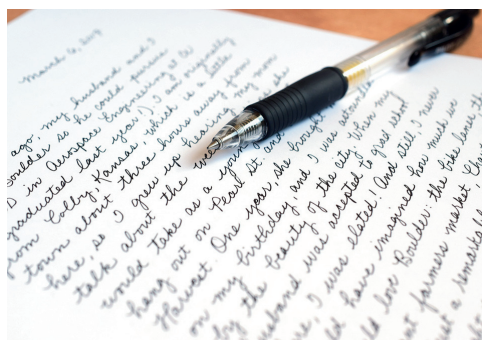 March 6, 2017
ago, my husband and I
Boulder so he could pursue
D in Aerospace Engineering at CU
graduated last year). I am originally
from Colby, Kansas, which is a little
town about three hours away from
here, so I grew up hearing my mom
talk about the
would take as a young
hang out on Pearl St. and
Harvest. One year, she brought
on my birthday, and I was astounded
by the beauty of the city. When my
husband was accepted to grad school
I was elated! And still I never
could have imagined how much we
would love Boulder: the bike lanes, the
farmers market,
just a remarkable